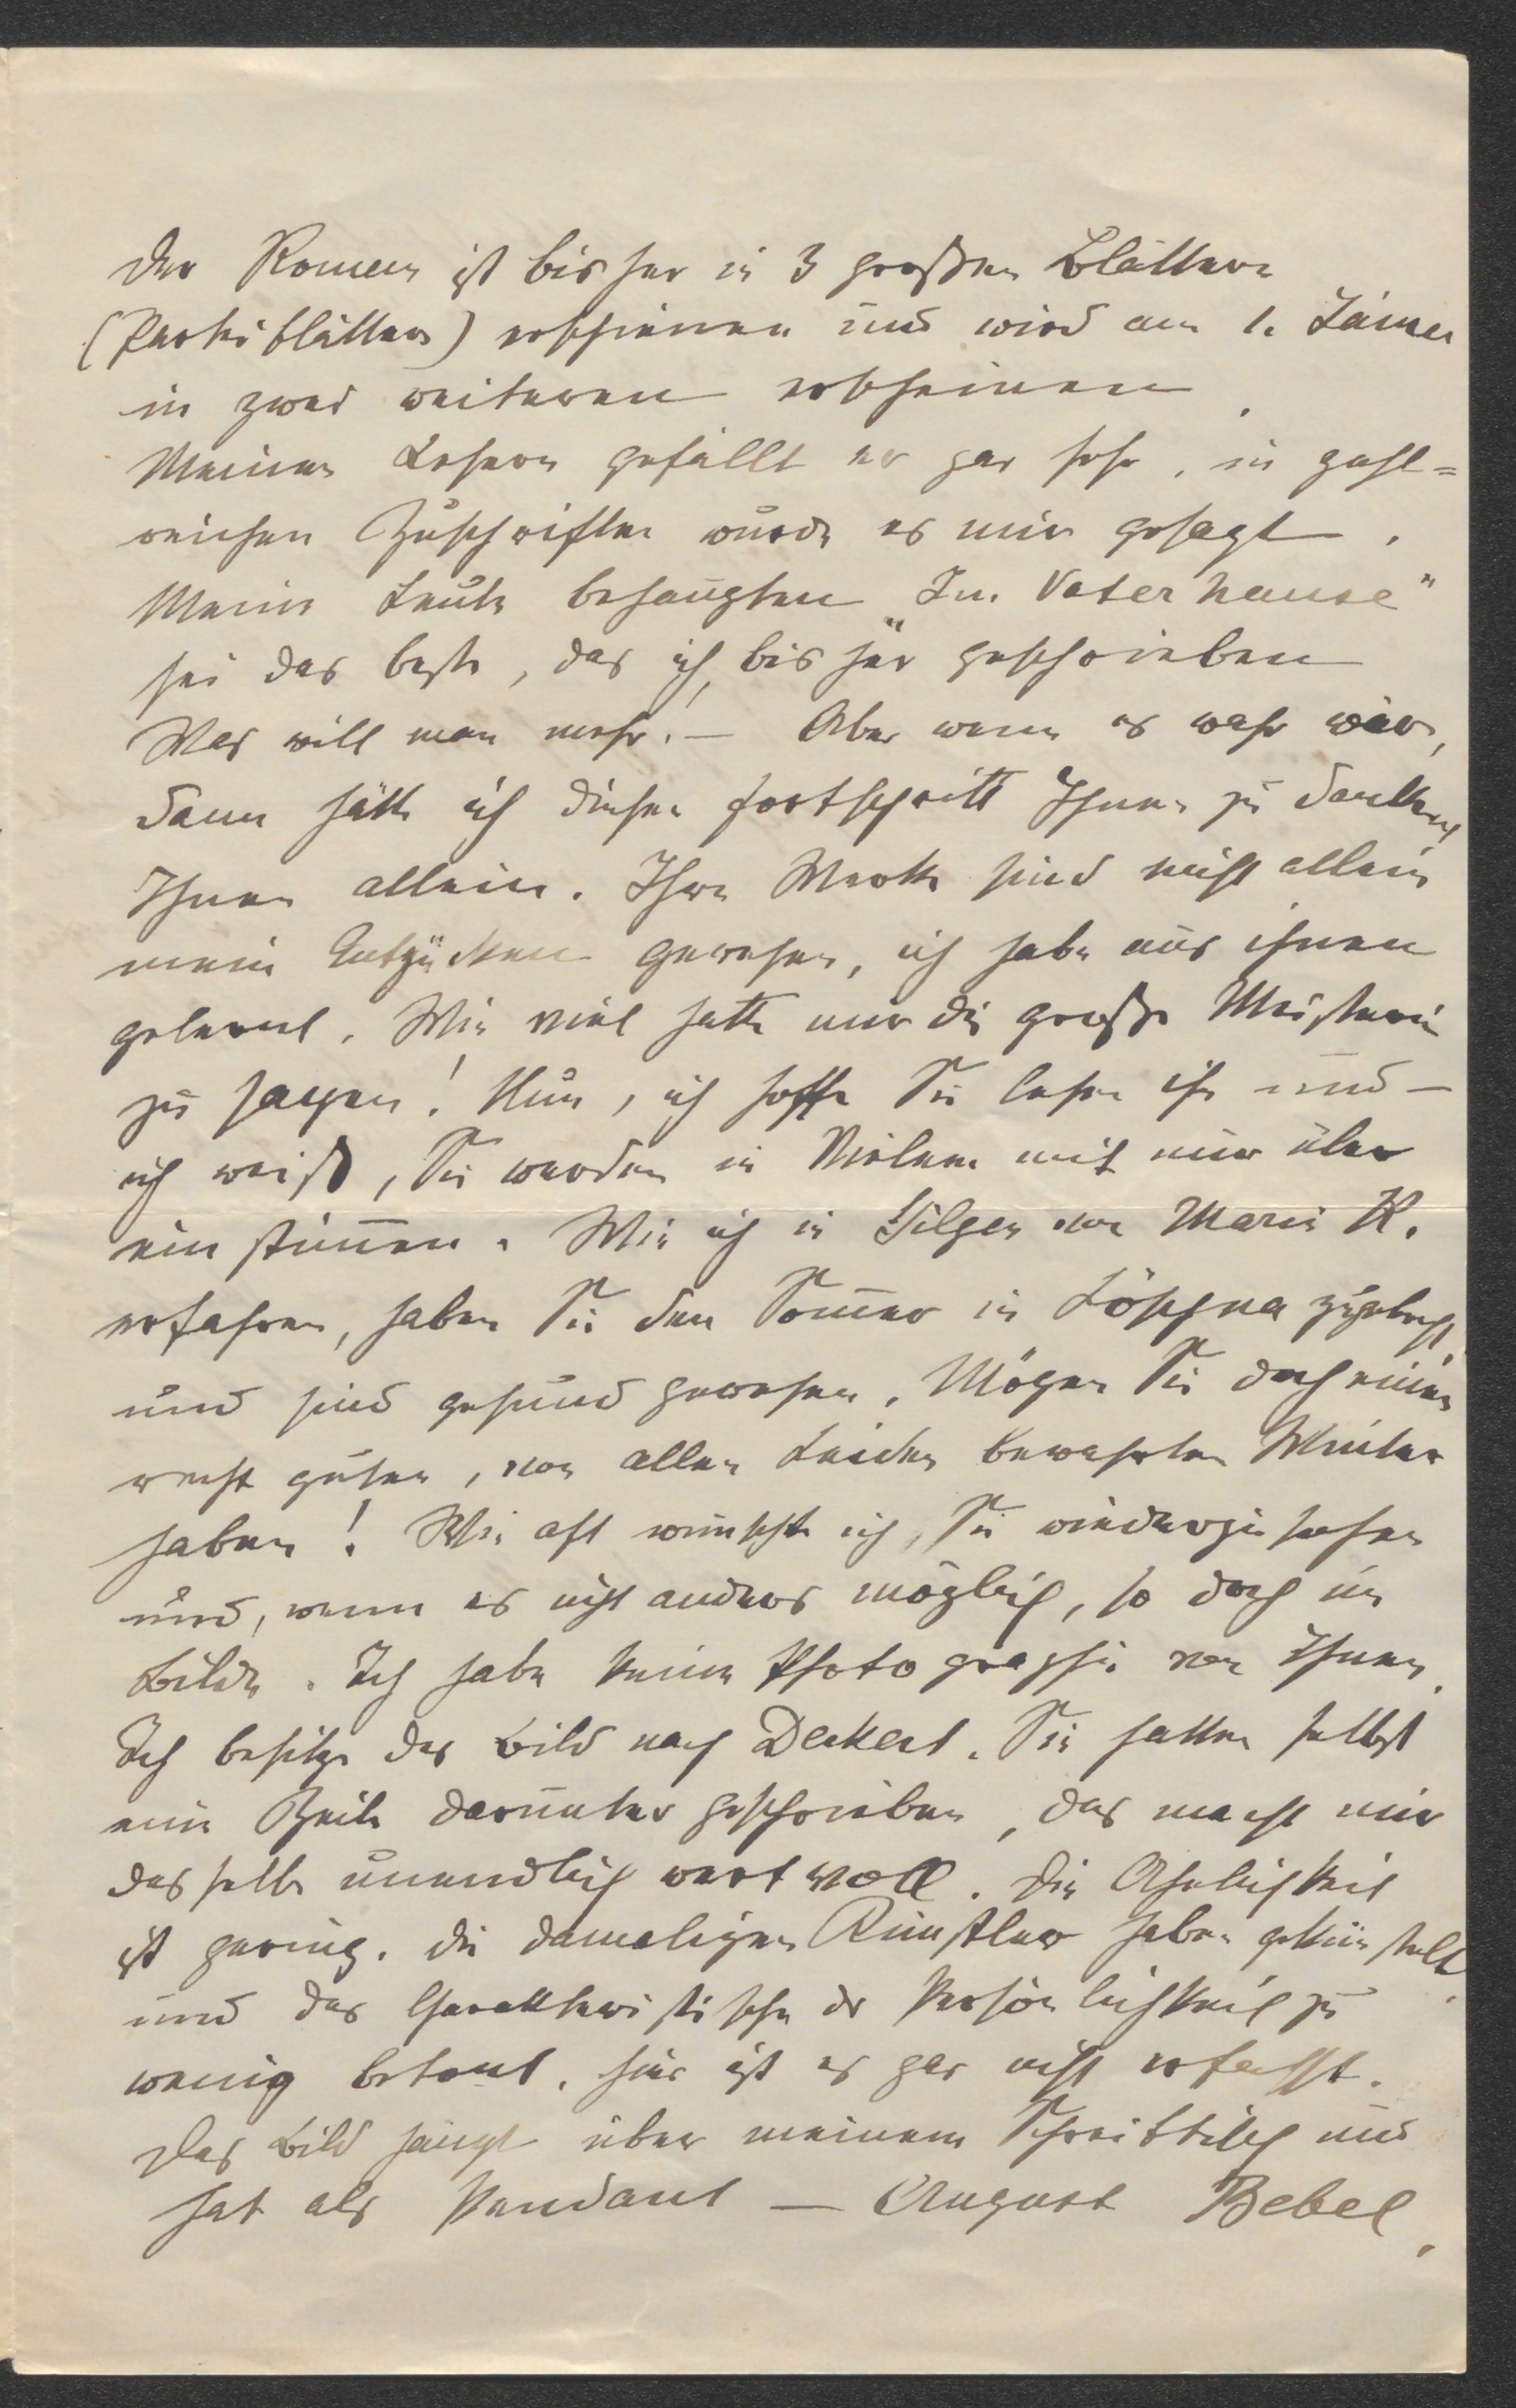 Der Roman ist bisher in 3 großen Blättern
(Parteiblättern) erschienen und wird am 1. Jänner
in zwei weiteren erscheinen.
Meinen Lesern gefällt er gar sehr, in zahl=
reichen Zuschriften wurde es mir gesagt.
Meine Leute behaupten „Im Vaterhause"
sei das beste, das ich bisher geschrieben
Was will man mehr! — Aber wenn es wahr wäre,
dann hätte ich diesen Fortschritt Ihnen zu danken
Ihnen allein. Ihre Werke sind nicht allein
mein Entzücken gewesen, ich habe aus ihnen
gelernt. Wie viel hatte mir die große Meisterin
zu sagen! Nun, ich hoffe Sie lesen ihn und —
ich weiß, Sie werden in Vielem mit mir über
einstimmen. Wie ich in Gilgen von Marie K.
erfahren, haben Sie den Sommer in Löschna zugebracht,
und sind gesund gewesen. Mögen Sie doch einen
recht guten, von allen Leiden bewahrten Winter
haben! Wie oft wünschte ich, Sie wiederzusehen
und, wenn es nicht anders möglich, so doch im
Bilde. Ich habe keine Photographie von Ihnen.
Ich besitze das Bild nach Deckert. Sie hatten selbst
eine Zeile darunter geschrieben, das macht mir
dasselbe unendlich wertvoll. Die Ähnlichkeit
ist gering. Die damaligen Künstler haben gekünstelt,
und das Charakteristische der Persönlichkeit zu
wenig betont. hier ist es gar nicht erfasst.
Das Bild hängt über meinem Schreibtisch und
hat als Pendant — August Bebel.